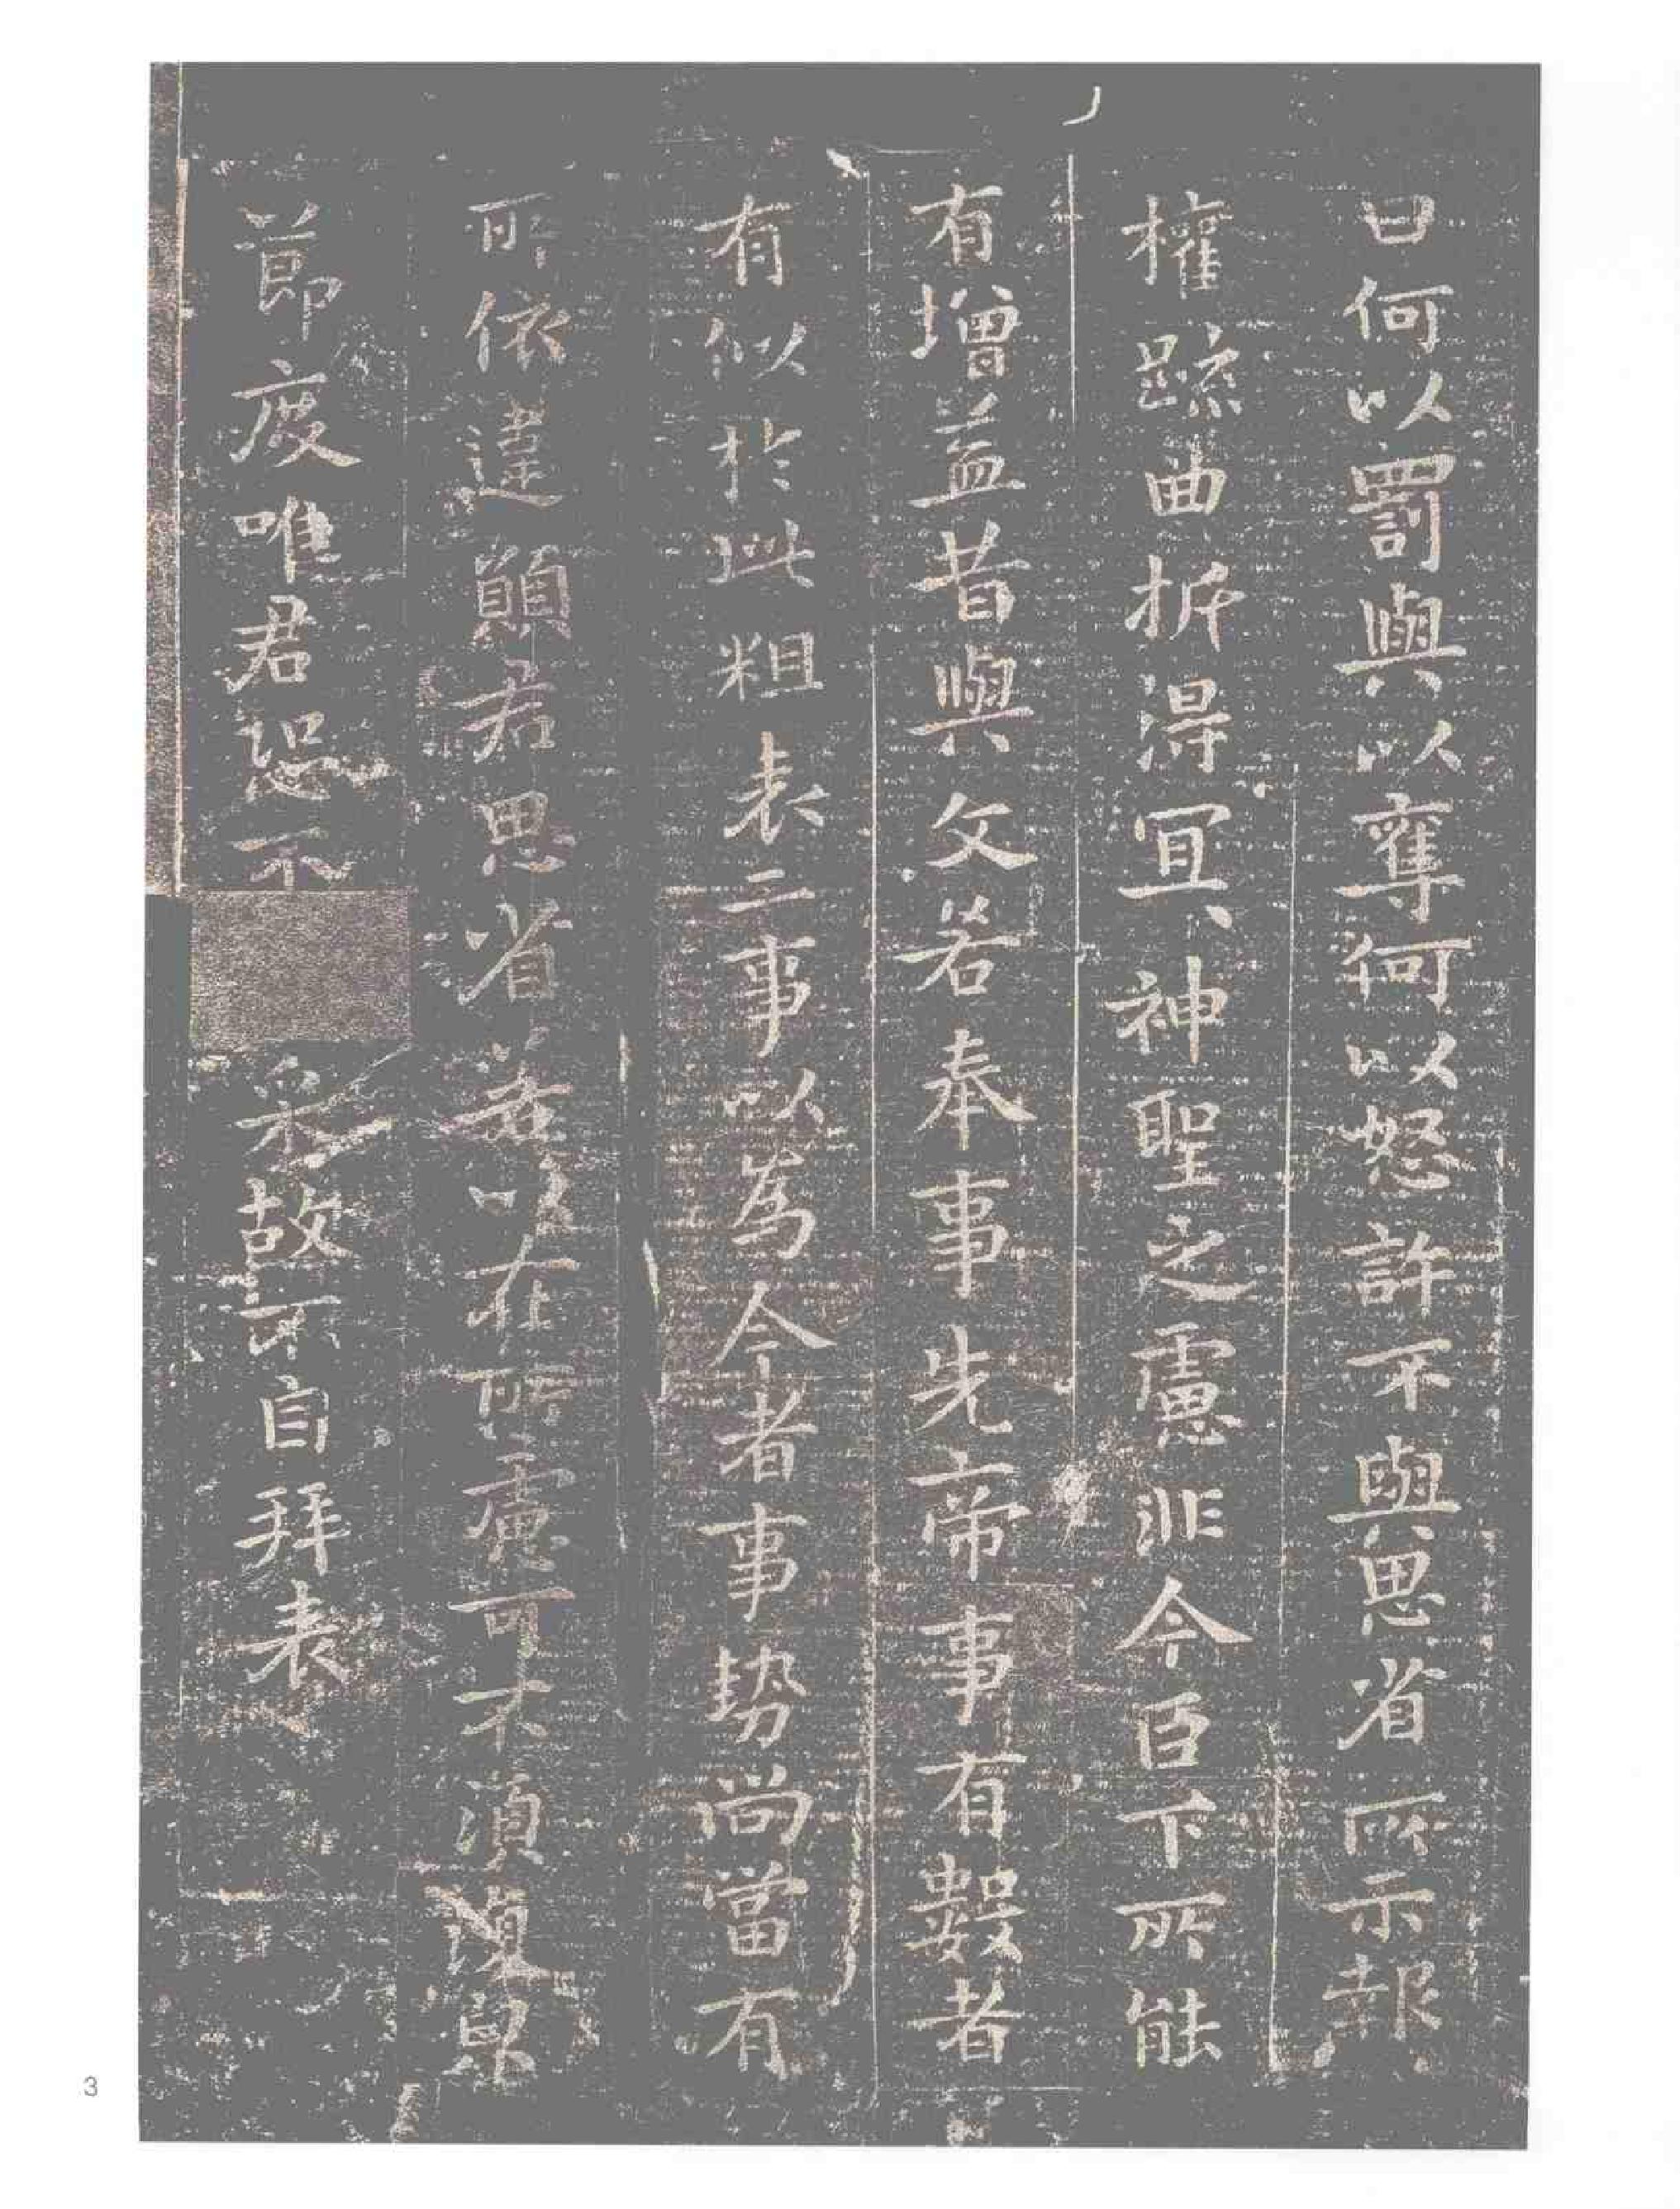 曰何以罰與以奪何以怒許不與思省所示報
權疏曲折得宜神聖之慮非今臣下所能
有增益昔與文若奉事先帝事有數者
有似於此粗表二事以為今者事勢尚當有
所依違願君思省若以在所慮可不須復皃
節度唯君恐不
采故不自拜表
3